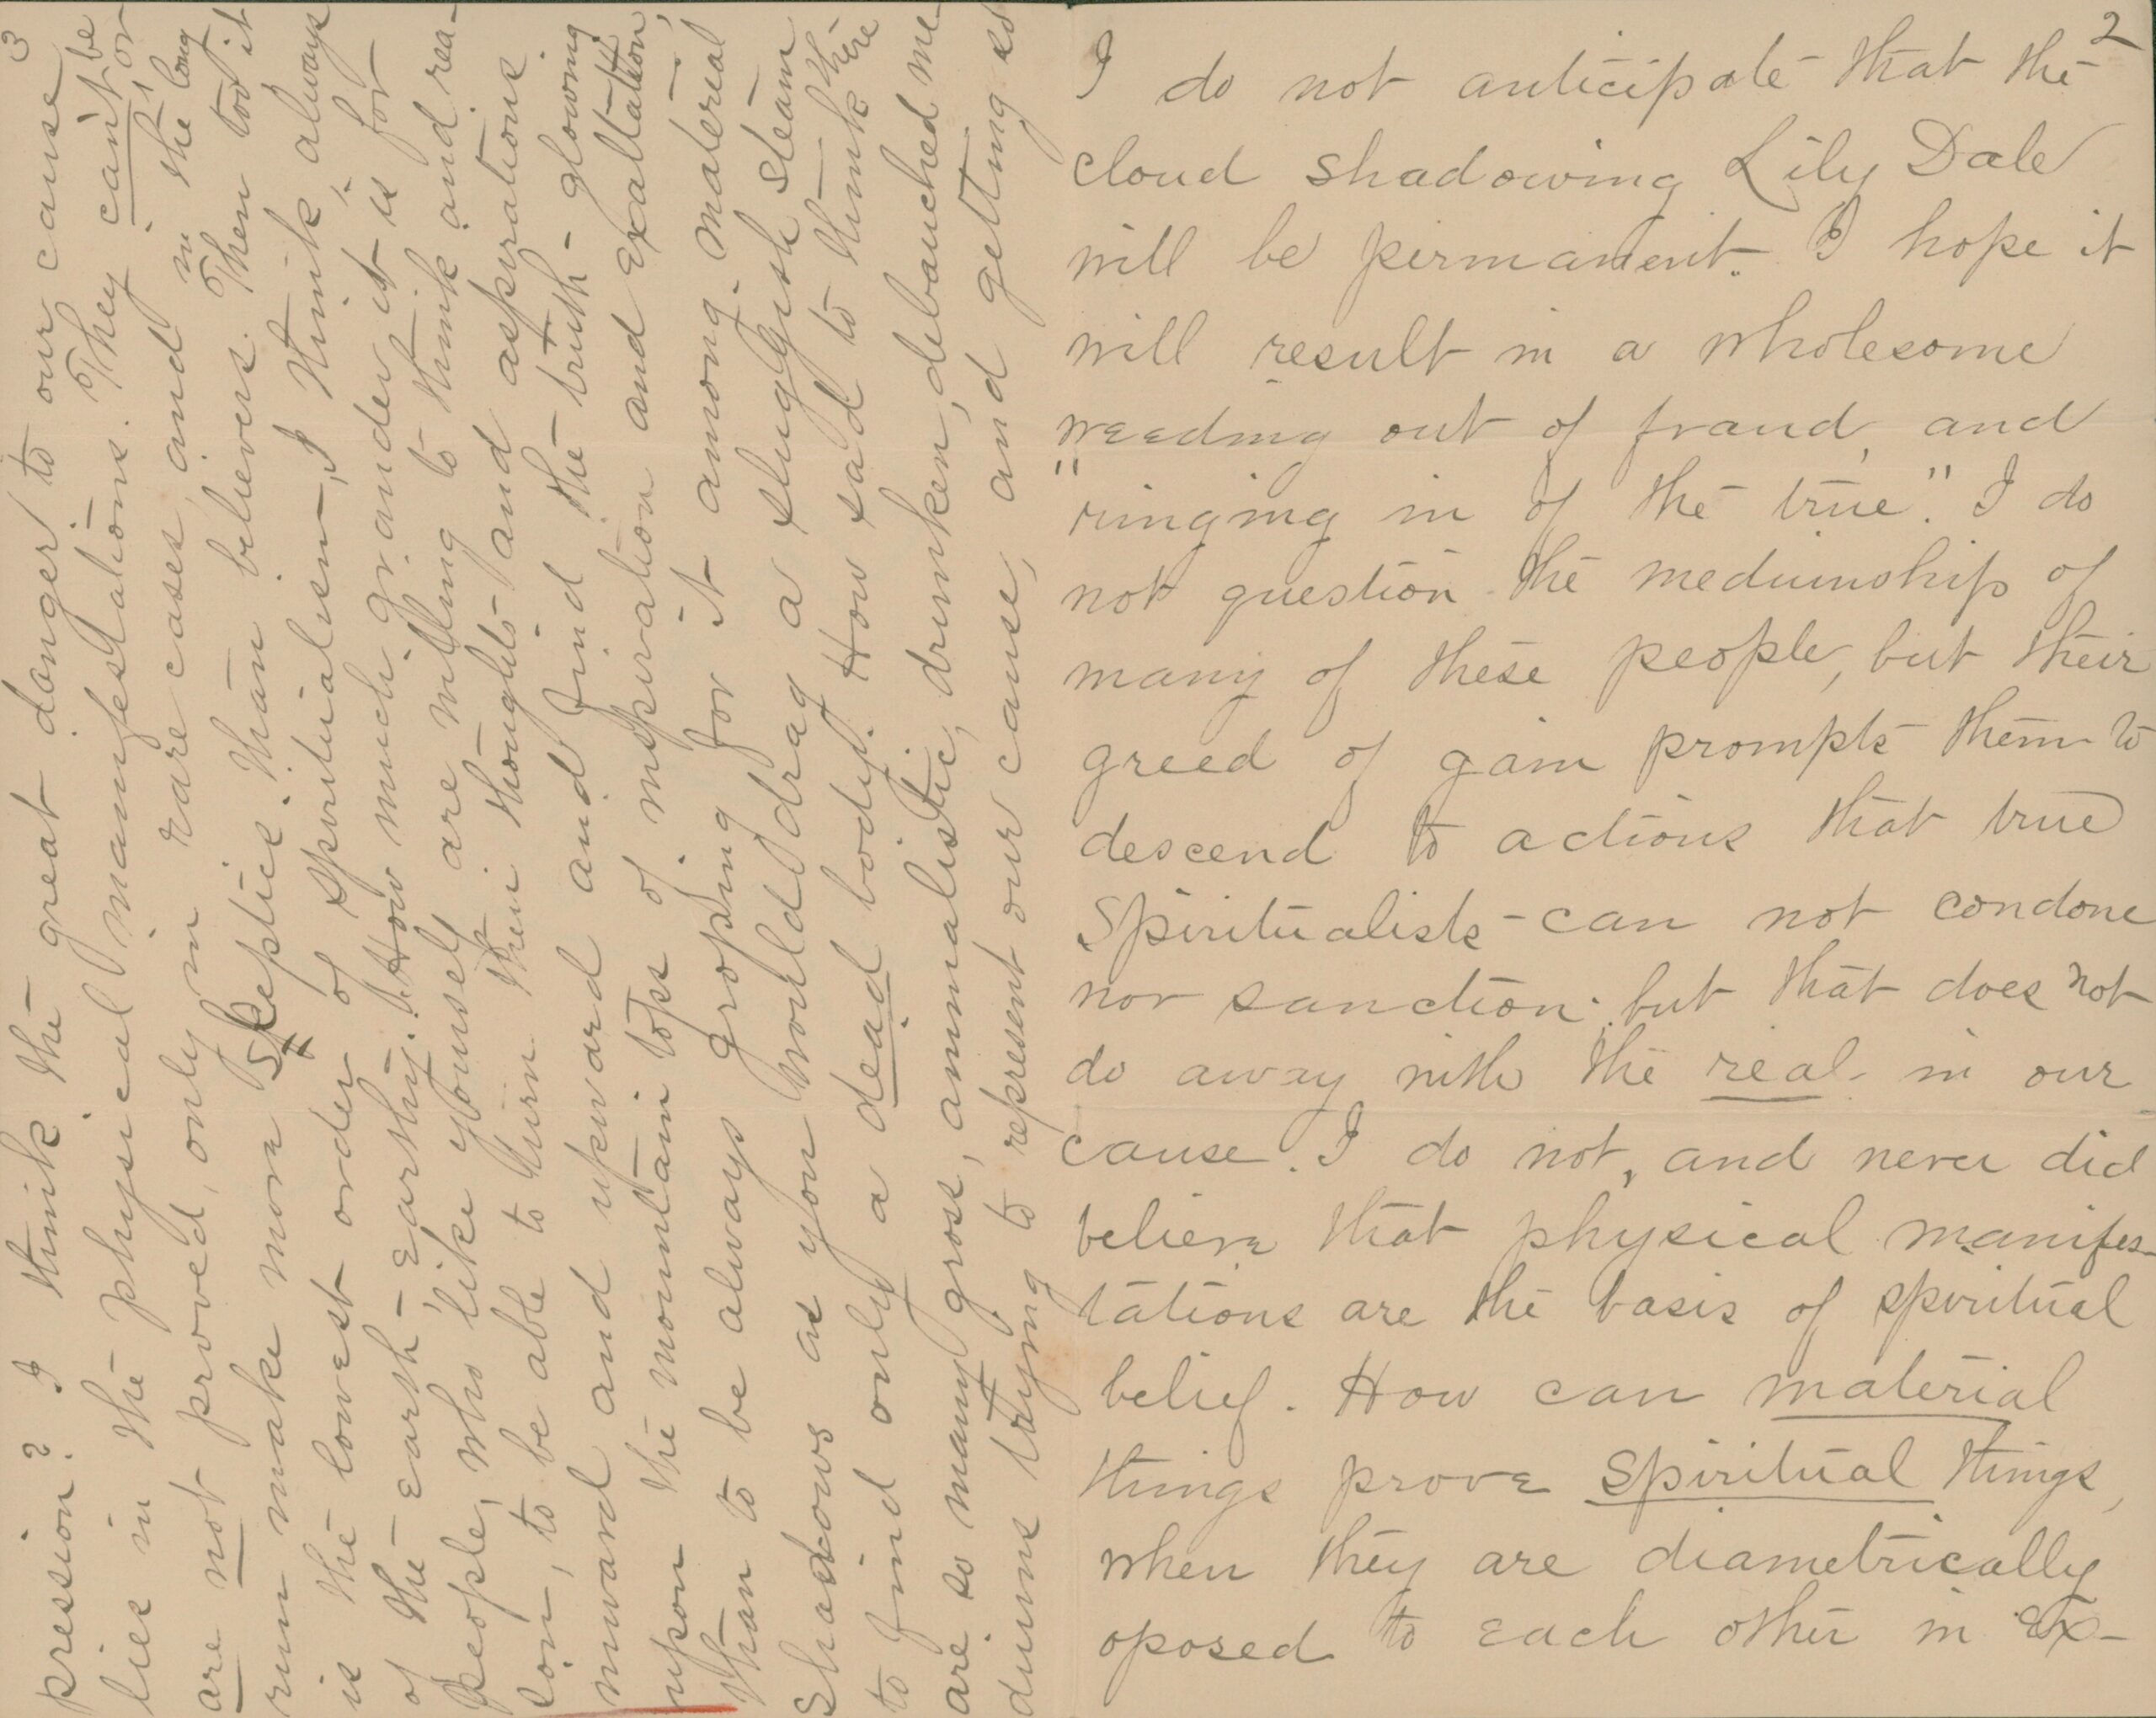 2
I do not anticipate that the
cloud shadowing Lily Dale
will be permanent. I hope it
will result in a wholesome
weeding out of fraud, and
"ringing in of the true". I do
not question the mediumship of
many of these people, but their
greed of gain prompts them to
descend to actions that true
Spiritualists can not condone
nor sanction; but that does not
do away with the real in our
cause. I do not, and never did
believe that physical manifes-
tations are the basis of spiritual
belief. How can material
things prove spiritual things,
when they are diametrically
oposed to each other in ex-
3
pression? I think the great danger to our cause
lies in the physical manifestations. They can't be
are not proved, only in rare cases, and in the long
run make more skeptics than believers. Then too it
is the lowest order of spiritualism, I think, always
of the earth-earthy. How much grander it is, for
people, who like yourself are willing to think and rea-
son, to be able to turn their thoughts and aspirations
inward and upward and find the truth - glowing
upon the mountain tops of inspiration and exaltation,
than to be always groping for it among material
shadows as you would drag a sluggish stream
to find only a dead body. How sad to think there
are so many gross, animalistic, drunken, debauched me-
diums trying to represent our cause, and getting so